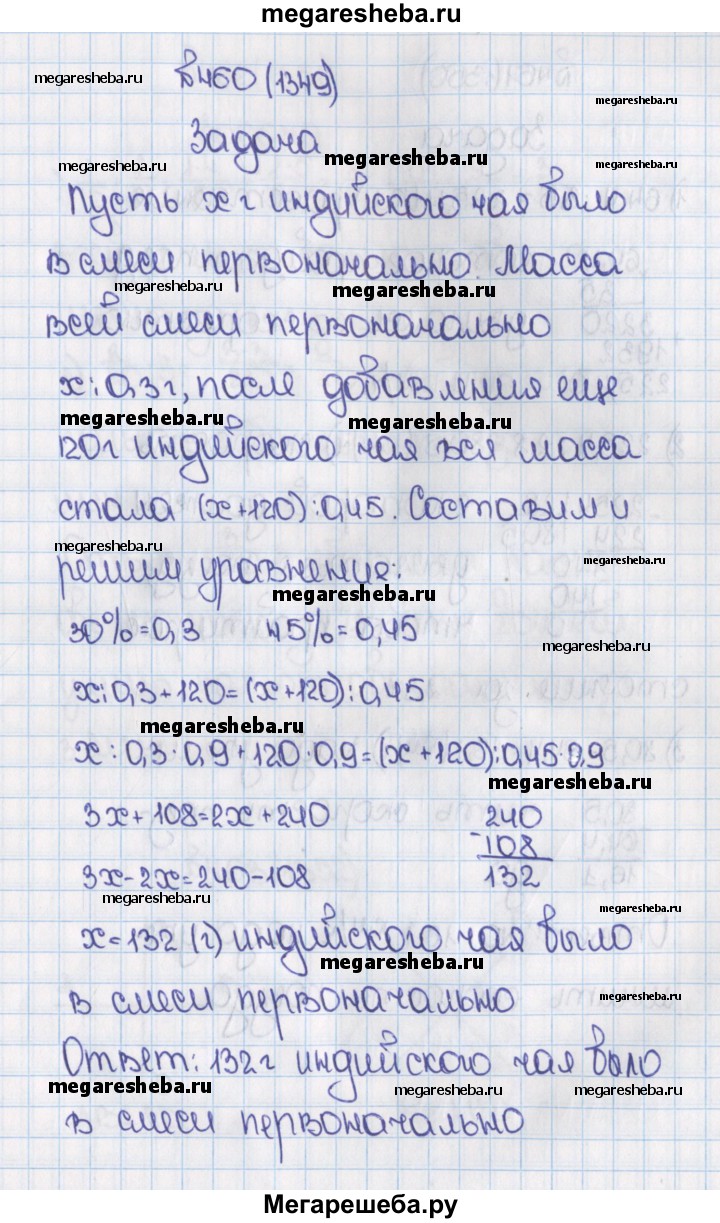 megaresheba.ru
в 460 (1349)
megaresheba.ru
megaresheba.ru
Задача
megaresheba.ru
megaresheba.ru
megaresheba.ru
Пусть x г индийского чая было
в смеси первоначально. Масса
megaresheba.ru
megaresheba.ru
всей смеси первоначально
x:0,3 г, после добавления еще
megaresheba.ru
megaresheba.ru
120 г индийского чая вся масса
стала (x+120):0,45. Составим и
megaresheba.ru
megaresheba.ru
решим уравнение:
megaresheba.ru
30%=0,3 45%=0,45
megaresheba.ru
x:0,3+120=(x+120):0,45
megaresheba.ru
x:0,3·0,9+120·0,9=(x+120):0,45·0,9
megaresheba.ru
3x+108=2x+240 240
-108
3x-2x=240-108 132
megaresheba.ru
megaresheba.ru
x=132 (г) индийского чая было
megaresheba.ru
в смеси первоначально
megaresheba.ru
Ответ: 132 г индийского чая было
megaresheba.ru
megaresheba.ru
megaresheba.ru
в смеси первоначально
Мегарешеба.ру